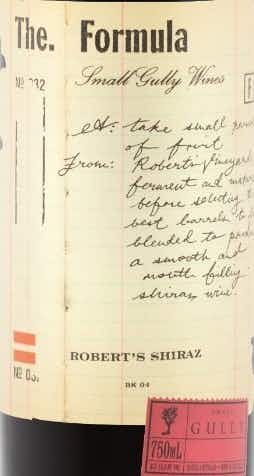 The. Formula
Small Gully Wines
Nº 032
Rx: take small
of fruit
From: Robert's Vineyard
ferment and
before selecting
best barrels to
blended to
a smooth and
mouth filling
shiraz wine.
ROBERT'S SHIRAZ
Nº 03
BK 04
SMALL
GULLY
750mL